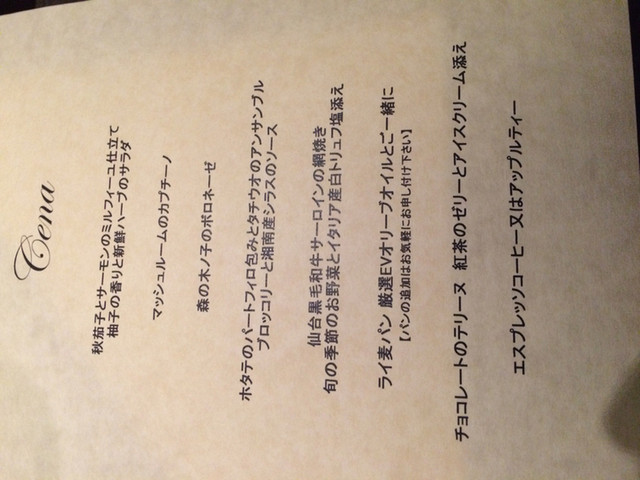 Cena
秋茄子とサーモンのミルフィーユ仕立て
柚子の香りと新鮮ハーブのサラダ
マッシュルームのカプチーノ
森の木ノ子のボロネーゼ
ホタテのパートフィロ包みとタチウオのアンサンブル
ブロッコリーと湘南産シラスのソース
仙台黒毛和牛サーロインの網焼き
旬の季節のお野菜とイタリア産白トリュフ塩添え
ライ麦パン 厳選EVオリーブオイルとご一緒に
【パンの追加はお気軽にお申し付け下さい】
チョコレートのテリーヌ 紅茶のゼリーとアイスクリーム添え
エスプレッソコーヒー又はアップルティー